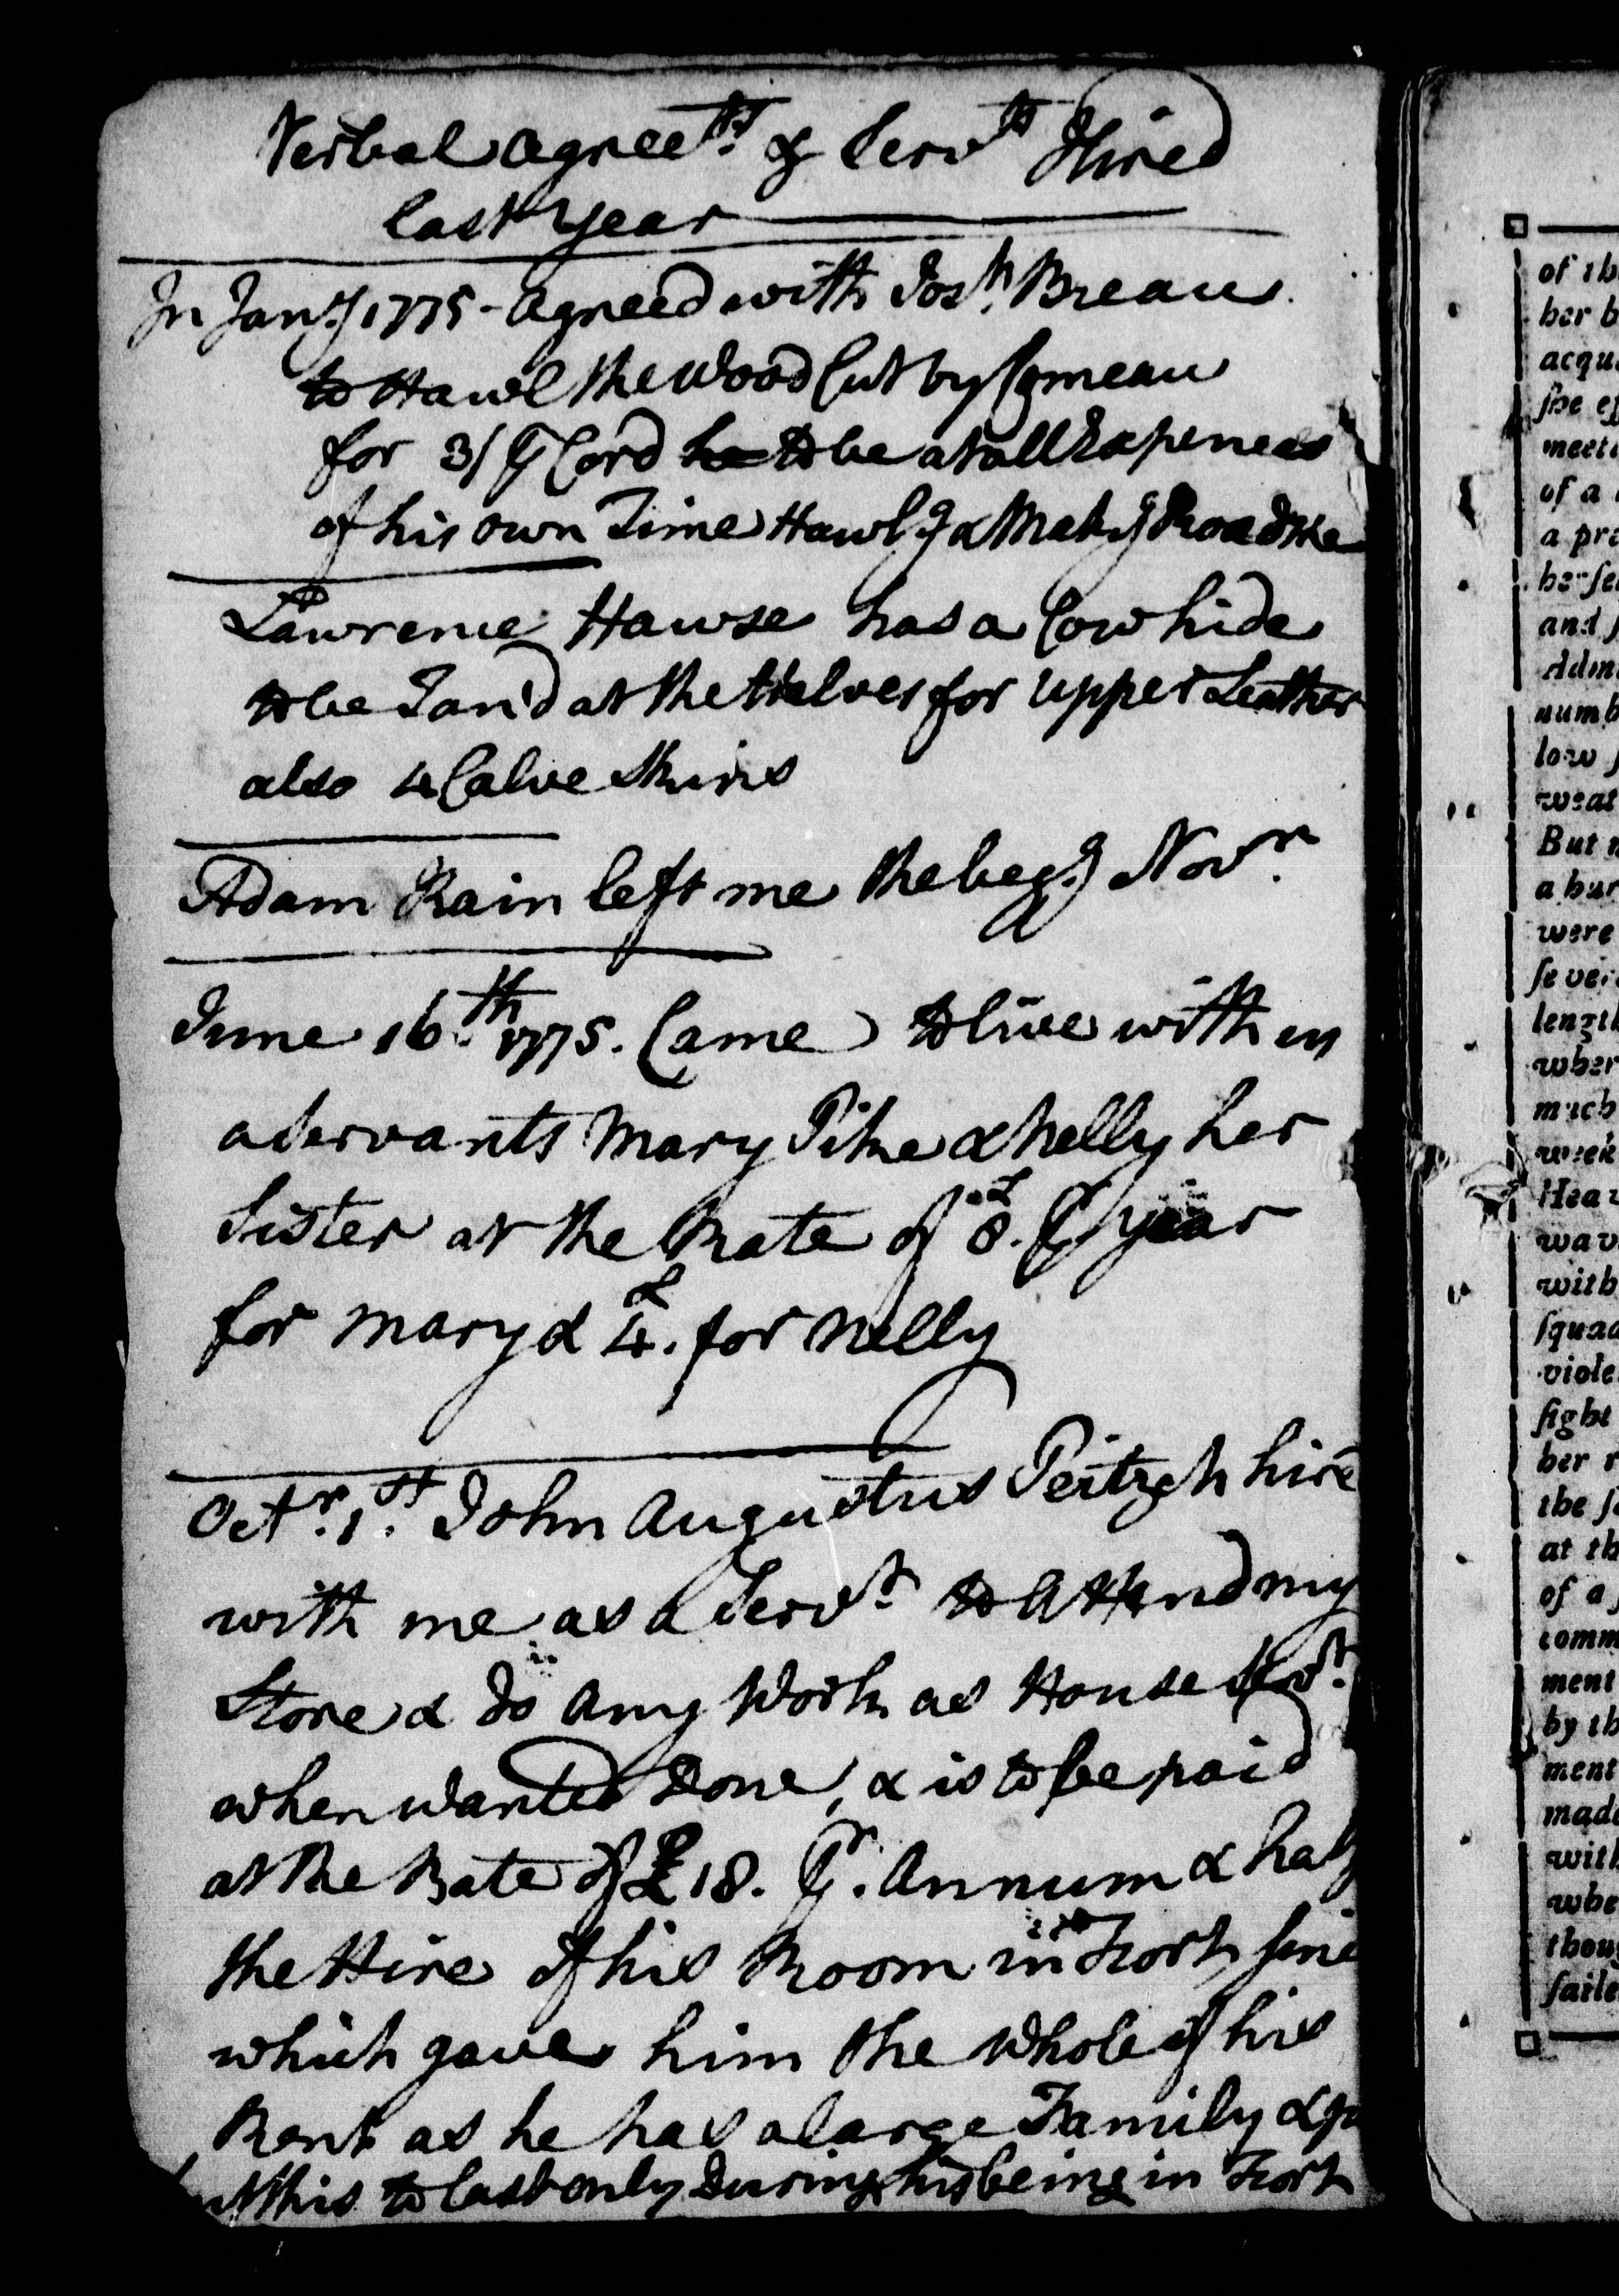 Verbal agreets. & Servts Hired
last year
In Jany 1775 - agreed with Josh. Breau
to Hawl the Wood Cut by Comeau
for 3/ ⅌ Cord he to be at all Expences
of his own Time Hawlg & Makg Road &ca
Lawrence Hawse has a Cow hide
to be Tan'd at the Halves for upper Leather
also 4 Calve Skins
Adam Rain left me the begg. Novr.
June 16th. 1775. Came to live with us
a Servants Mary Pike & Nelly her
Sister at the Rate of £8. ⅌ year
for Mary & £4. for Nelly
Octr. 1st. John Augustus Peitzch hire
with me as a Servt. to attend my
Store & do any Work as House Servt.
when wanted Done, & is to be paid
at the Rate of £18. ⅌r. Annum & half
the Hire of his Room in Fort sinc
which gave him the Whole of his
Rent as he has a large Family & p
but this to last only During his being in Fort
of th
her b
acqu
she e
meeti
of a
a pr
herse
and
Adm
numb
low
weat
But n
a hur
were
sever
lengt
wher
much
week
Heav
wav
with
squad
viole
fight
her r
the s
at th
of a
comm
ment
by th
ment
mad
with
whe
thou
saile